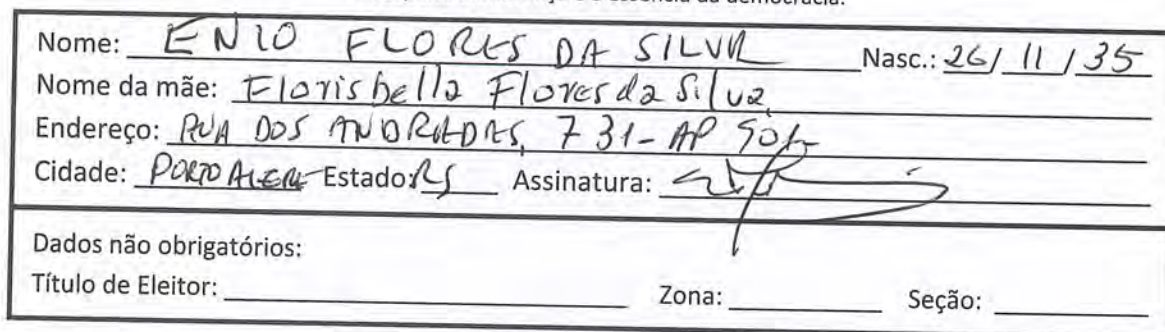 essência da democracia.
Nome: ENIO FLORES DA SILVA Nasc.: 26/11/35
Nome da mãe: Florisbella Flores da Silva
Endereço: RUA DOS ANDRADAS, 731 - AP
Cidade: PORTO ALEGRE Estado: RS Assinatura:
Dados não obrigatórios:
Título de Eleitor: Zona: Seção: